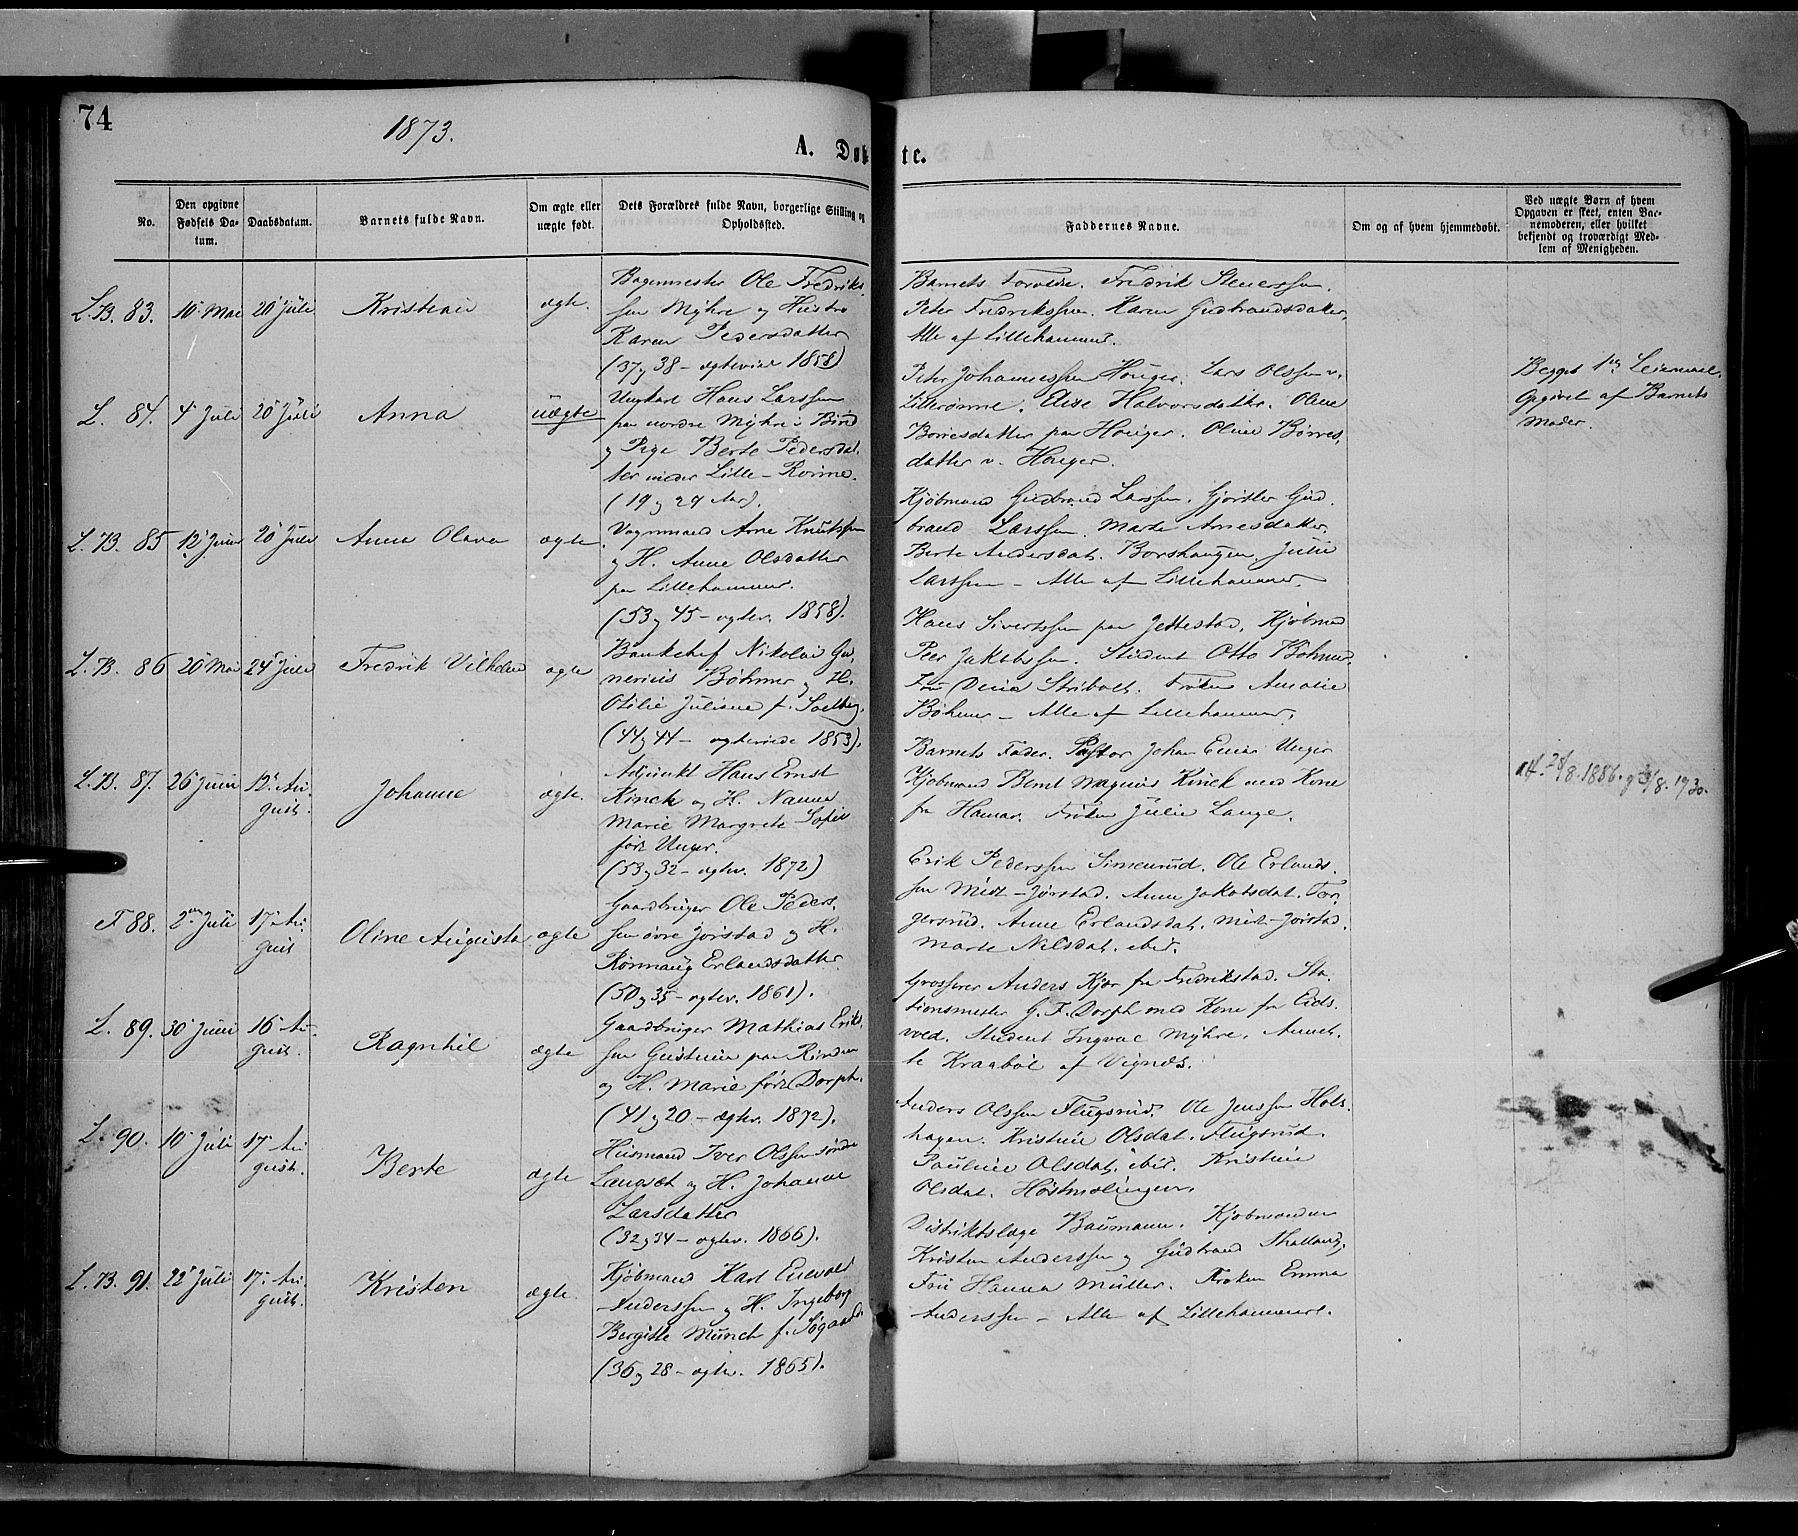 74
1873.
A. Døbte.
No.
Den opgivne Fødsels Datum.
Daabsdatum.
Barnets fulde Navn.
Om ægte eller uægte født.
Dets Forældres fulde Navn, borgerlige Stilling og Opholdssted.
Faddernes Navne.
Om og af hvem hjemmedøbt.
Ved uægte Børn af hvem Opgaven er skeet, enten Barnemoderen, eller hvilket bekjendt og troværdigt Medlem af Menigheden.
L.B. 83. 10 Mai 20 Juli
ægte.
Ole Fredriks-
sen Myhre og Hustru
Karen Pedersdatter
(37 og 38 - ægteviet 1858)
Barnets Forældre. Fredrik
Peter Fredrikssen. Karen Gudbrandsdatter,
Alle af Lillehammer.
L. 84. 4 Juli 20 Juli
Anna
uægte
Ungkarl Hans Larssen
paa nordre Myhre i
og Pige Berte Pedersdat-
ter under Lille-
(19 og 29 Aar).
Peter Johannessen Houger. Lars Olssen v.
Elise Halvorsdatter. Oline
Børresdatter paa Houger. Oline Børres-
datter v. Houger.
Begges 1ste Leiermaal.
Opgivet af Barnets
Moder.
L.B. 85 12 Juni 20 Juli
Anna Olava
ægte
Vognmand Arne Knutssen
og H. Anne Olsdatter
paa Lillehammer.
(53 og 45 - ægtev. 1858).
Kjøbmand Gudbrand Larssen. Gjørtler Gud-
brand Larssen. Marte Arnesdatter.
Berte Andersdat. Borshaugen, Julie
Larssen - Alle af Lillehammer.
L.B. 86 20 Mai 24 Juli
Fredrik Vilhelm
ægte
Bankchef Nikolai Gu-
nerius Bøhmer og H.
Otilie Juliane f.
(44 og 44 - ægteviede 1853).
Hans Sivertssen paa Jettestad, Kjøbmand
Peer Jakobssen. Student Otto Bøhmer.
Fru Stribolt. Frøken Amalie
Bøhmer - Alle af Lillehammer.
L.B. 87. 26 Juni 12 Au-
gust.
Johanne
ægte.
Adjunkt Hans Ernst
Kinck og H. Nanna
Marie Margrete Sofie
født Unger.
(53 og 32 - ægtev. 1872)
Barnets Fader. Pastor Johan Unger
Kjøbmand Bernt Magnus Kinck med Kone
fra Hamar. Frøken Julie Lange.
28/8. 1886. 1930.
F 88. 2 Juli 17 Au-
gust
Oline Augusta
ægte
Gaardbruger Ole Peders-
sen øvre Jørstad og H.
Rønnaug Erlandsdatter
(50 og 35 - ægtev. 1861).
Erik Pederssen Simenrud. Ole Erlands-
sen Midt-Jørstad. Anne Jakobsdat. Tor-
gersrud. Anne Erlandsdat. Midt-Jørstad.
Marte Nilsdat. ibid.
L. 89. 30 Juni 16 Au-
gust.
Ragnhil
ægte
Gaardbruger Mathias Erik-
sen paa Rindan
og H. Marie født Dorph.
(41 og 20 - ægtev. 1872).
Grosserer Anders Kjær fra Fredrikstad. Sta-
tionsmester G. F. Dorph med Kone fra Eids-
vold. Student Ingval Myhre. Annet-
te Kraabøl af Vignæs.
L. 90. 10 Juli 17 Au-
gust.
Berte
ægte
Husmand Iver Olssen søndre
Langset og H. Johanne
Larsdatter
(32 og 34 - ægtev. 1866).
Anders Olssen Flugsrud. Ole Jenssen Hols-
hagen. Kristine Olsdat. Flugsrud.
Pauline Olsdat. ibid. Kristine
Olsdat.
L.B. 91. 22 Juli 17 Au-
gust.
Kristen
ægte.
Kjøbmand Karl Enevold
Anderssen og H. Ingeborg
Bergitte Munch f. Søgaard.
(36 og 28 - ægtev. 1865).
Distriktslæge Baumann. Kjøbmændene
Kristen Anderssen og Gudbrand
Fru Hanna Müller. Frøken Emma
Anderssen - Alle af Lillehammer.